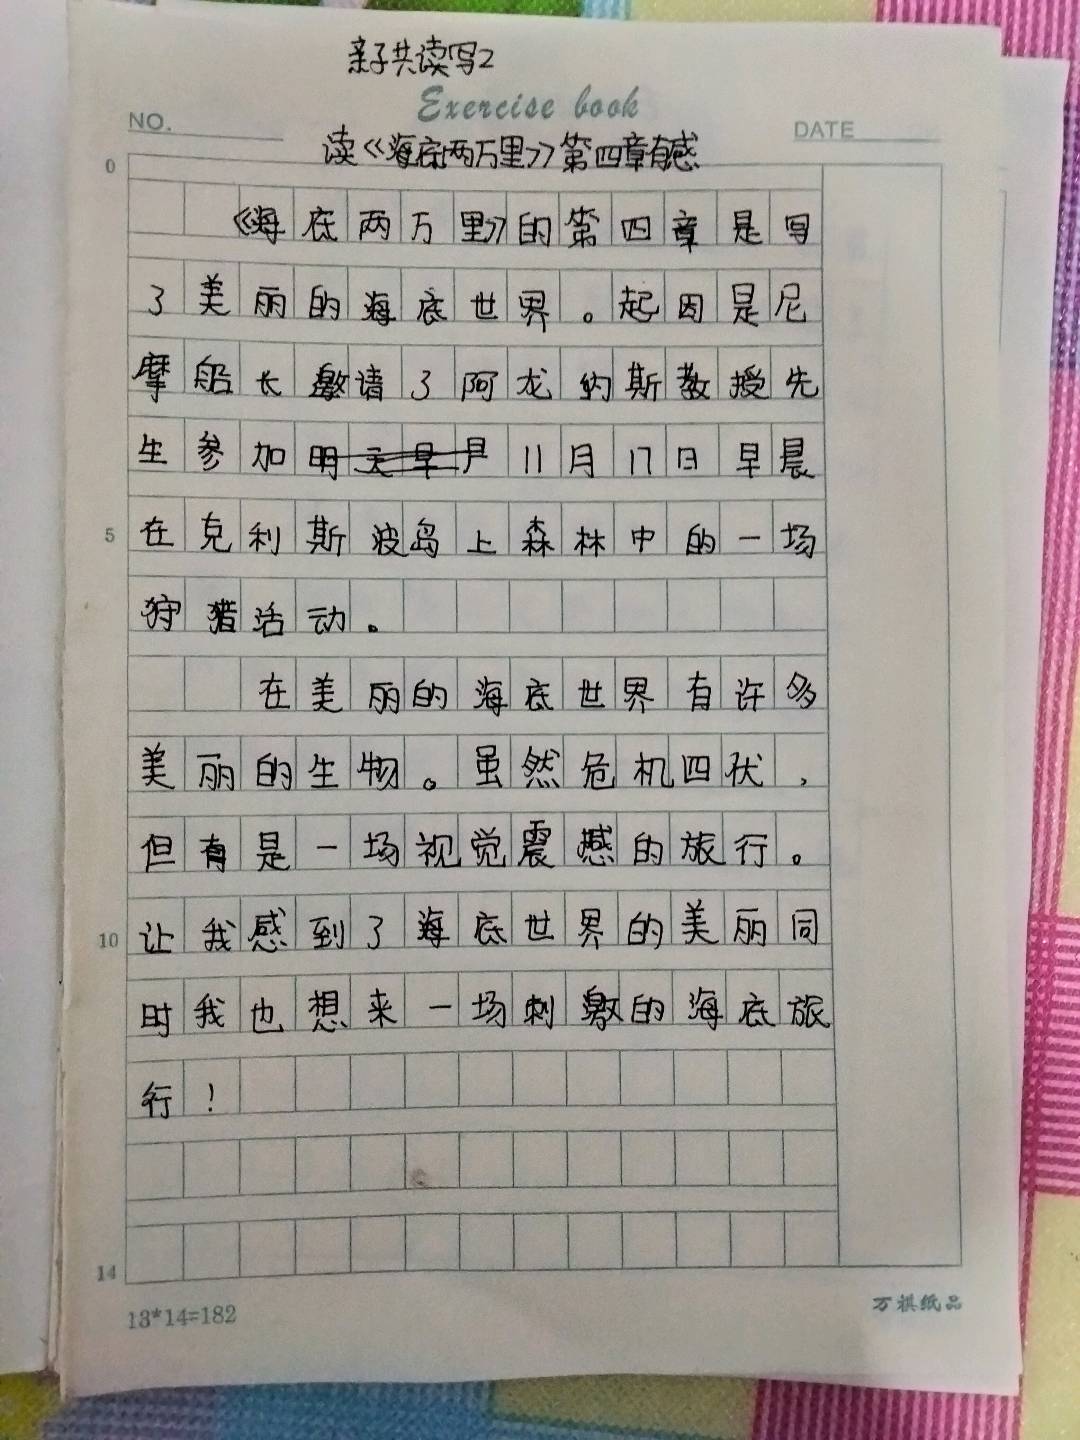 亲子共读写2
Exercise book
NO.
DATE
读《海底两万里》第四章有感
0
《海底两万里》的第四章是写
了美丽的海底世界。起因是尼
摩船长邀请了阿龙纳斯教授先
生参加明天早 11月17日早晨
5
在克利斯波岛上森林中的一场
狩猎活动。
在美丽的海底世界有许多
美丽的生物。虽然危机四伏，
但有是一场视觉震撼的旅行。
10
让我感到了海底世界的美丽同
时我也想来一场刺激的海底旅
行！
14
13*14=182
万祺纸品